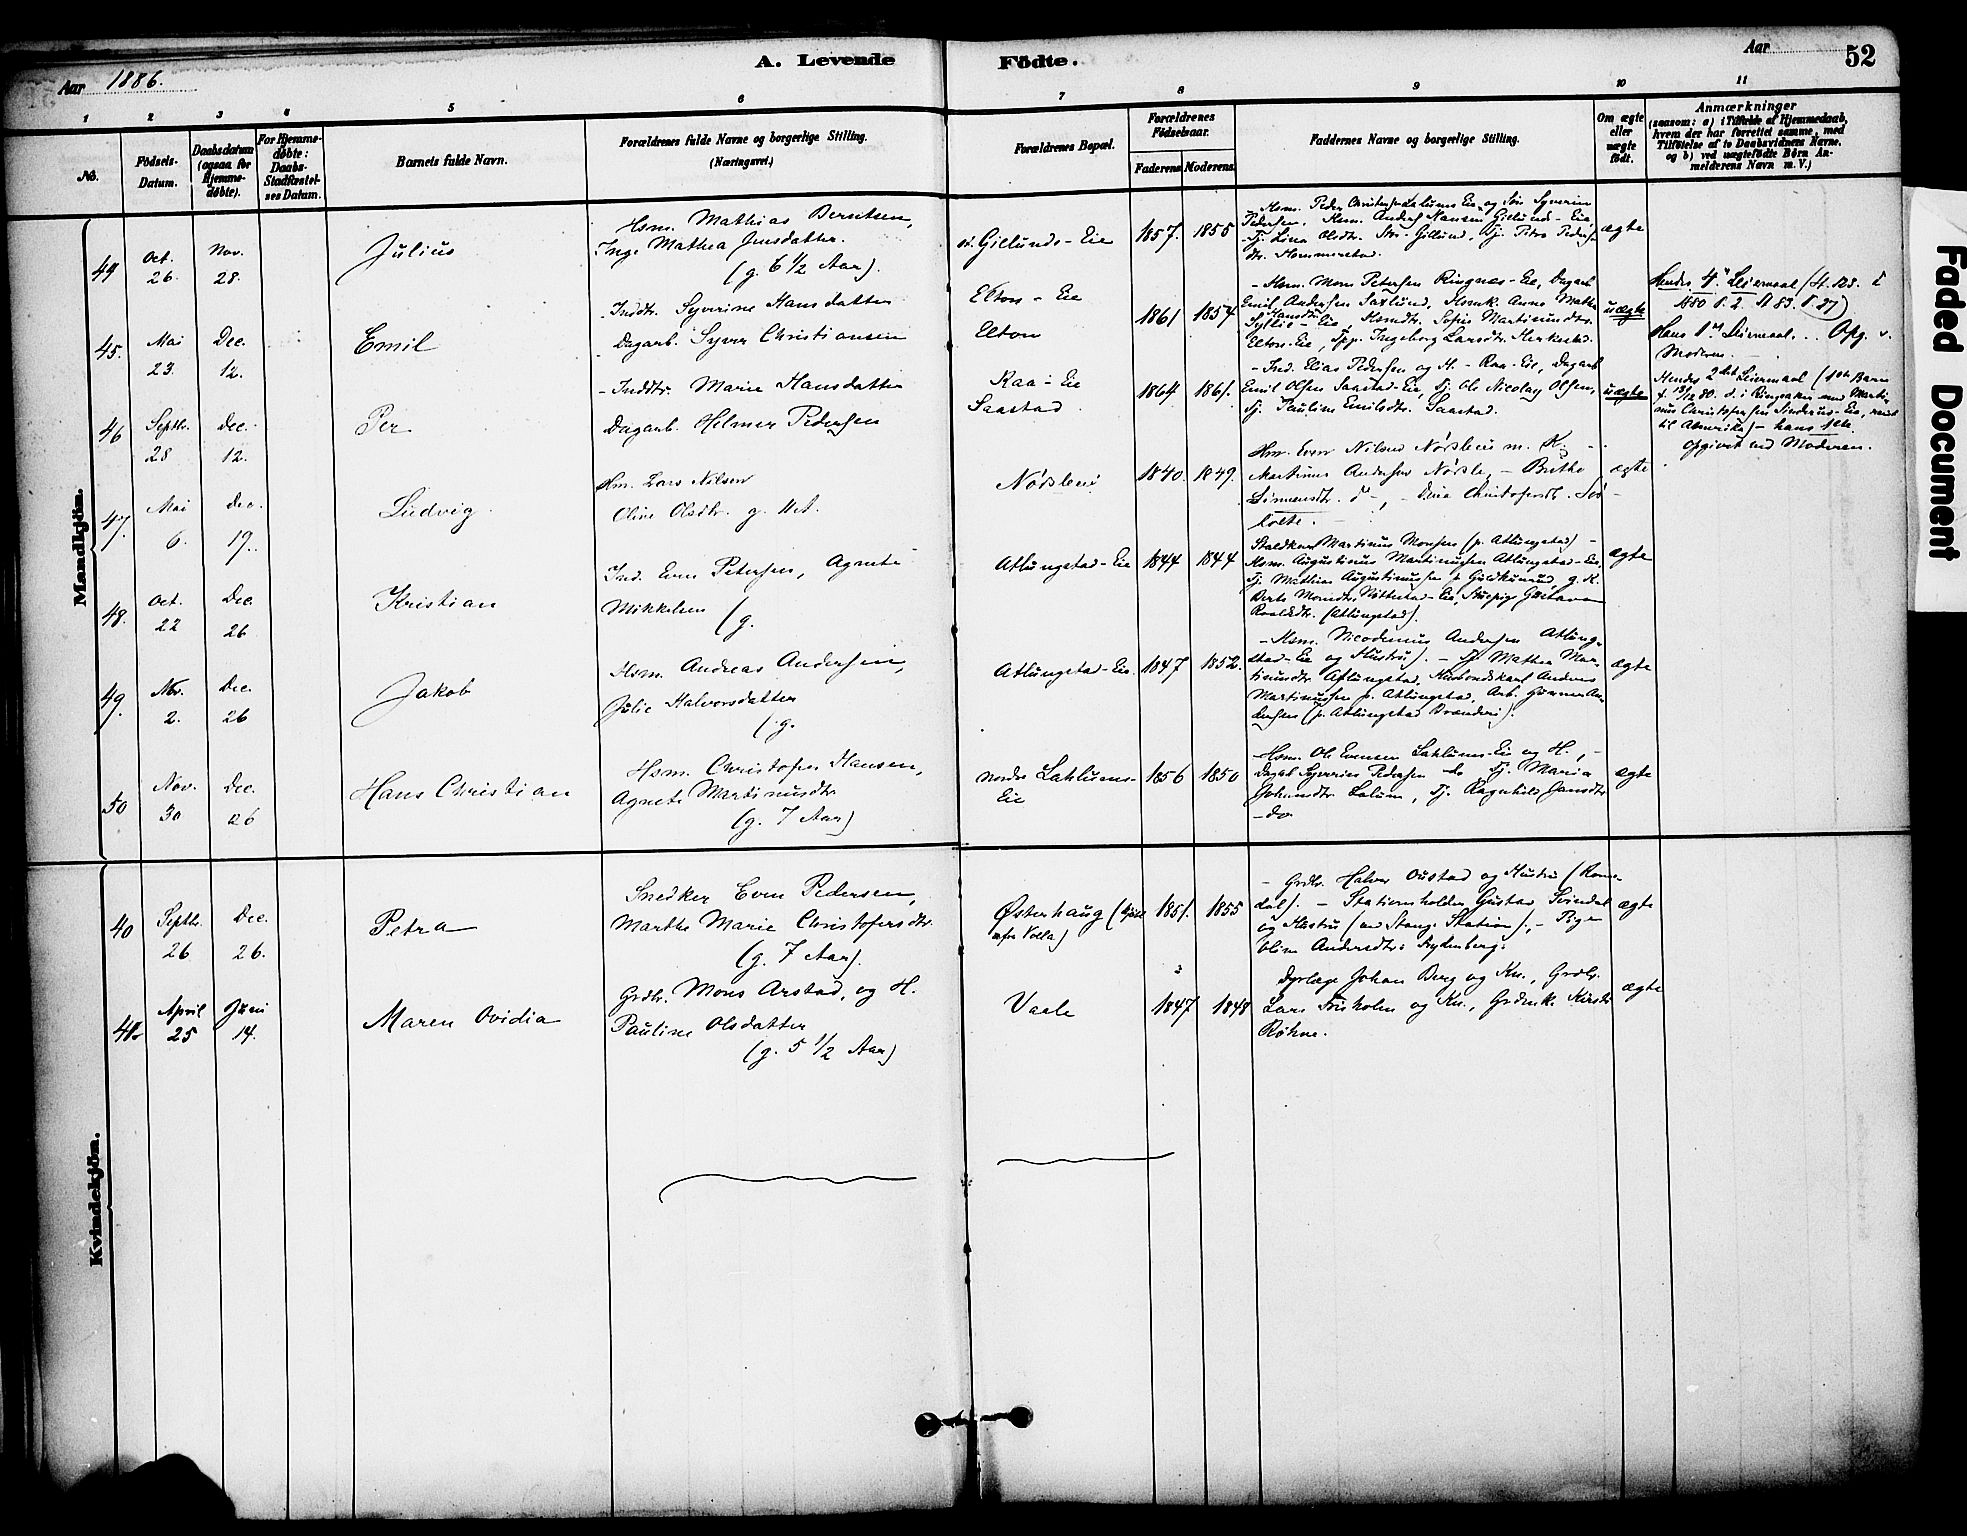 A. Levende Födte.
Aar 1886.
Aar
52
1 2 3 4 5 6 7 8 9 10 11
No.
Födsels-Datum.
Daabsdatum (ogsaa for Hjemme-døbte).
For Hjemme-døbte: Daabs-Stadfæstel-ses Datum.
Barnets fulde Navn.
Forældrenes fulde Navne og borgerlige Stilling.
(Næringsvei.)
Forældrenes Bopæl.
Forældrenes Födselsaar.
Faderens Moderens
Faddernes Navne og borgerlige Stilling.
Om ægte eller uægte født.
Anmærkninger
(saasom: a) i Tilfælde af Hjemmedaab,
hvem der har forrettet samme, med
Tilføielse af to Daabsvidners Navne.
og b) ved uægtefødte Börn An-
melderens Navn m. V.)
Mandkjön.
44 Oct. 26. Nov. 28. Julius
Hsm. Mathias Berntsen,
Inge Mathea Jensdatter.
(g. 6 1/2 Aar).
Gillunds-Eie 1857. 1855
Hsm. Peder Christensen Lalums Eie og Søn Syverin
Pedersen, Hsm. Anders Hansen Gillunds-Eie
Tj. Lina Olsdtr. Str. Gillund, Tj. Petra Peders
dtr. Hommerstad.
ægte
45. Mai 23. Dec. 12. Emil
Inddtr. Syverine Hansdatter
Dagarb. Syver Christiansen
Elton-Eie
Elton
1861 1854
- Hsm. Mons Petersen Ringnæs-Eie, Dagarb
Emil Andersen Saxlund, Hsmk. Anne Mathea
Hansdtr
Eie, Hsmdtr. Sofie Martinusdtr.
Elton-Eie, Ingeborg Larsdtr.
uægte
Hendes 4de Leiermaal
Hans 1ste Leiermaal... Opg. v.
Moderen.
46 Septbr. 28 Dec. 12. Per
- Inddtr. Marie Hansdatter
Dagarb. Helmer Pedersen
Raa-Eie
Saastad
1864 1861.
- Ind. Elias Pedersen og H. - Raa-Eie, Dagarb
Emil Olsen Saastad-Eie, Tj. Ole Nicolay Olsen,
Tj. Pauline Emilsdtr. Saastad.
uægte
Hendes 2det Leiermaal (1ste Barn
f. 13/12 80. d. i Ringsaker med Marti-
nus Christophersen Eie, reist
til Amerika) - hans 1ste.
Opgivet ved Moderen.
47. Mai 6. Dec. 19. Ludvig
Hm. Lars Nilsen
Oline Olsdtr. g. 11 A.
Nøsleie 1840. 1849.
Hm. Even Nilsen m. K. -
Martinus Andersen - Birthe
Simensdtr. - Christofersdtr.
ægte
48. Oct. 22 Dec. 26 Kristian
Ind. Even Petersen, Agnete
Mikkelsen (g.
Atlungstad-Eie 1844 1844
Staldkarl Martinus Monsen (p. Atlungstad) -
Hsm. Augustinus Martinusen Atlungstad-Eie
Tj. Mathias Augustinussen p. g. K.
Berte Monsdtr. Nøttestad-Eie, Stuepige Gustava
Roaldsdtr. (Atlungstad).
ægte
49. Nov. 2. Dec. 26 Jakob
Hsm. Andreas Andersen,
Julie Halvorsdatter
(g.
Atlungstad-Eie 1847 1852.
- Hsm. Nicodemus Andersen Atlung-
stad-Eie og Hustru). - Tj. Mathea Mar-
tinusdtr. Atlungstad, Husbondskarl Anders
Martinussen p. Atlungstad, Arb. Gunner An-
dersen (p. Atlungstad Brænderi).
ægte
50 Nov. 30 Dec. 26 Hans Christian
Hsm. Christofer Hansen,
Agnete Martinusdtr
(g. 7 Aar)
Nordre Lahlums-
Eie
1856 1850
- Hsm. Ole Evensen Lahlums-Eie og H., -
Dagarb Syverin Pedersen do Tj. Maria
Johansdtr Lalum, Tj. Ragnhild Jansdtr
- do
ægte
Kvindekjön.
40 Septbr. 26 Dec. 26. Petra
Snedker Even Pedersen,
Marthe Marie Christofersdtr.
(g. 7 Aar).
Østerhaug (
Volla)
1851. 1855
- Grdbr. Halvor Oustad og Hustru (Rome-
dal). - Stationsholder Gustav
og Hustru (ved Stange Station). - Pige
Oline Andersdtr. Rydenberg.
ægte
41. April 25 Juni 14. Maren Ovidia
Grdbr. Mons Arstad, og H.
Pauline Olsdatter
(g. 5 1/2 Aar)
Vaale 1847 1848
Dyrlæge Johan Berg og Kn., Grdbr.
Lars Frisholm og Kn., Grdenk. Kirsti
Røhne.
ægte
Faded Document